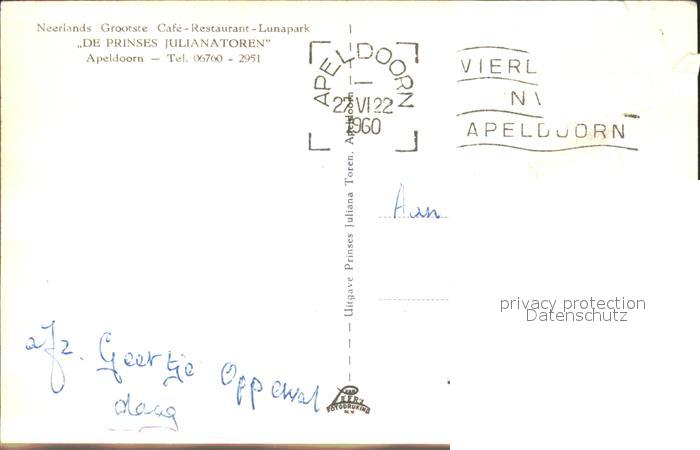 Neerlands Grootste Café-Restaurant-Lunapark
„DE PRINSES JULIANATOREN”
Apeldoorn — Tel. 06760 - 2951
APELDOORN
22 VI 22
1960
VIERL
N
APELDOORN
Uitgave Prinses Juliana Toren, Apeldoorn
Aan
privacy protection
Datenschutz
afz. Geertje Oppewal
daag
VAN LEER'S
FOTODRUKIND
N.V.